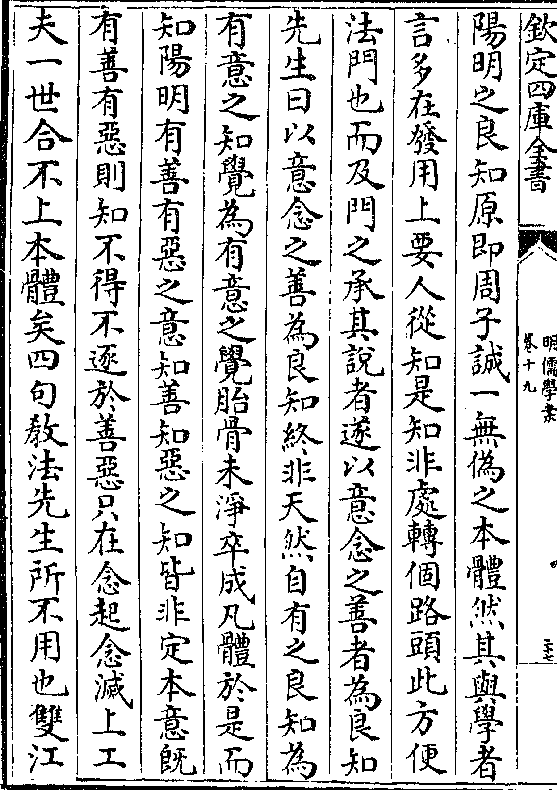 欽定四庫全書
明儒學案
卷十九
陽明之良知原即周子誠一無偽之本體然其與學者
言多在發用上要人從知是知非處轉個路頭此方便
法門也而及門之承其說者遂以意念之善者為良知
先生曰以意念之善為良知終非天然自有之良知為
有意之知覺為有意之覺胎骨未淨卒成凡體於是而
知陽明有善有惡之意知善知惡之知皆非定本意既
有善有惡則知不得不逐於善惡只在念起念滅上工
夫一世合不上本體矣四句教法先生所不用也雙江